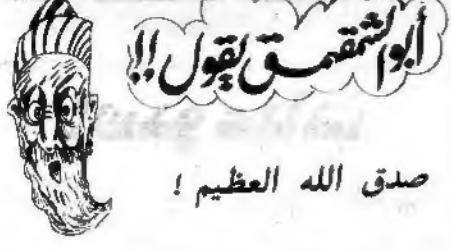 أبو الشمقمق يقول !!
صدق الله العظيم !